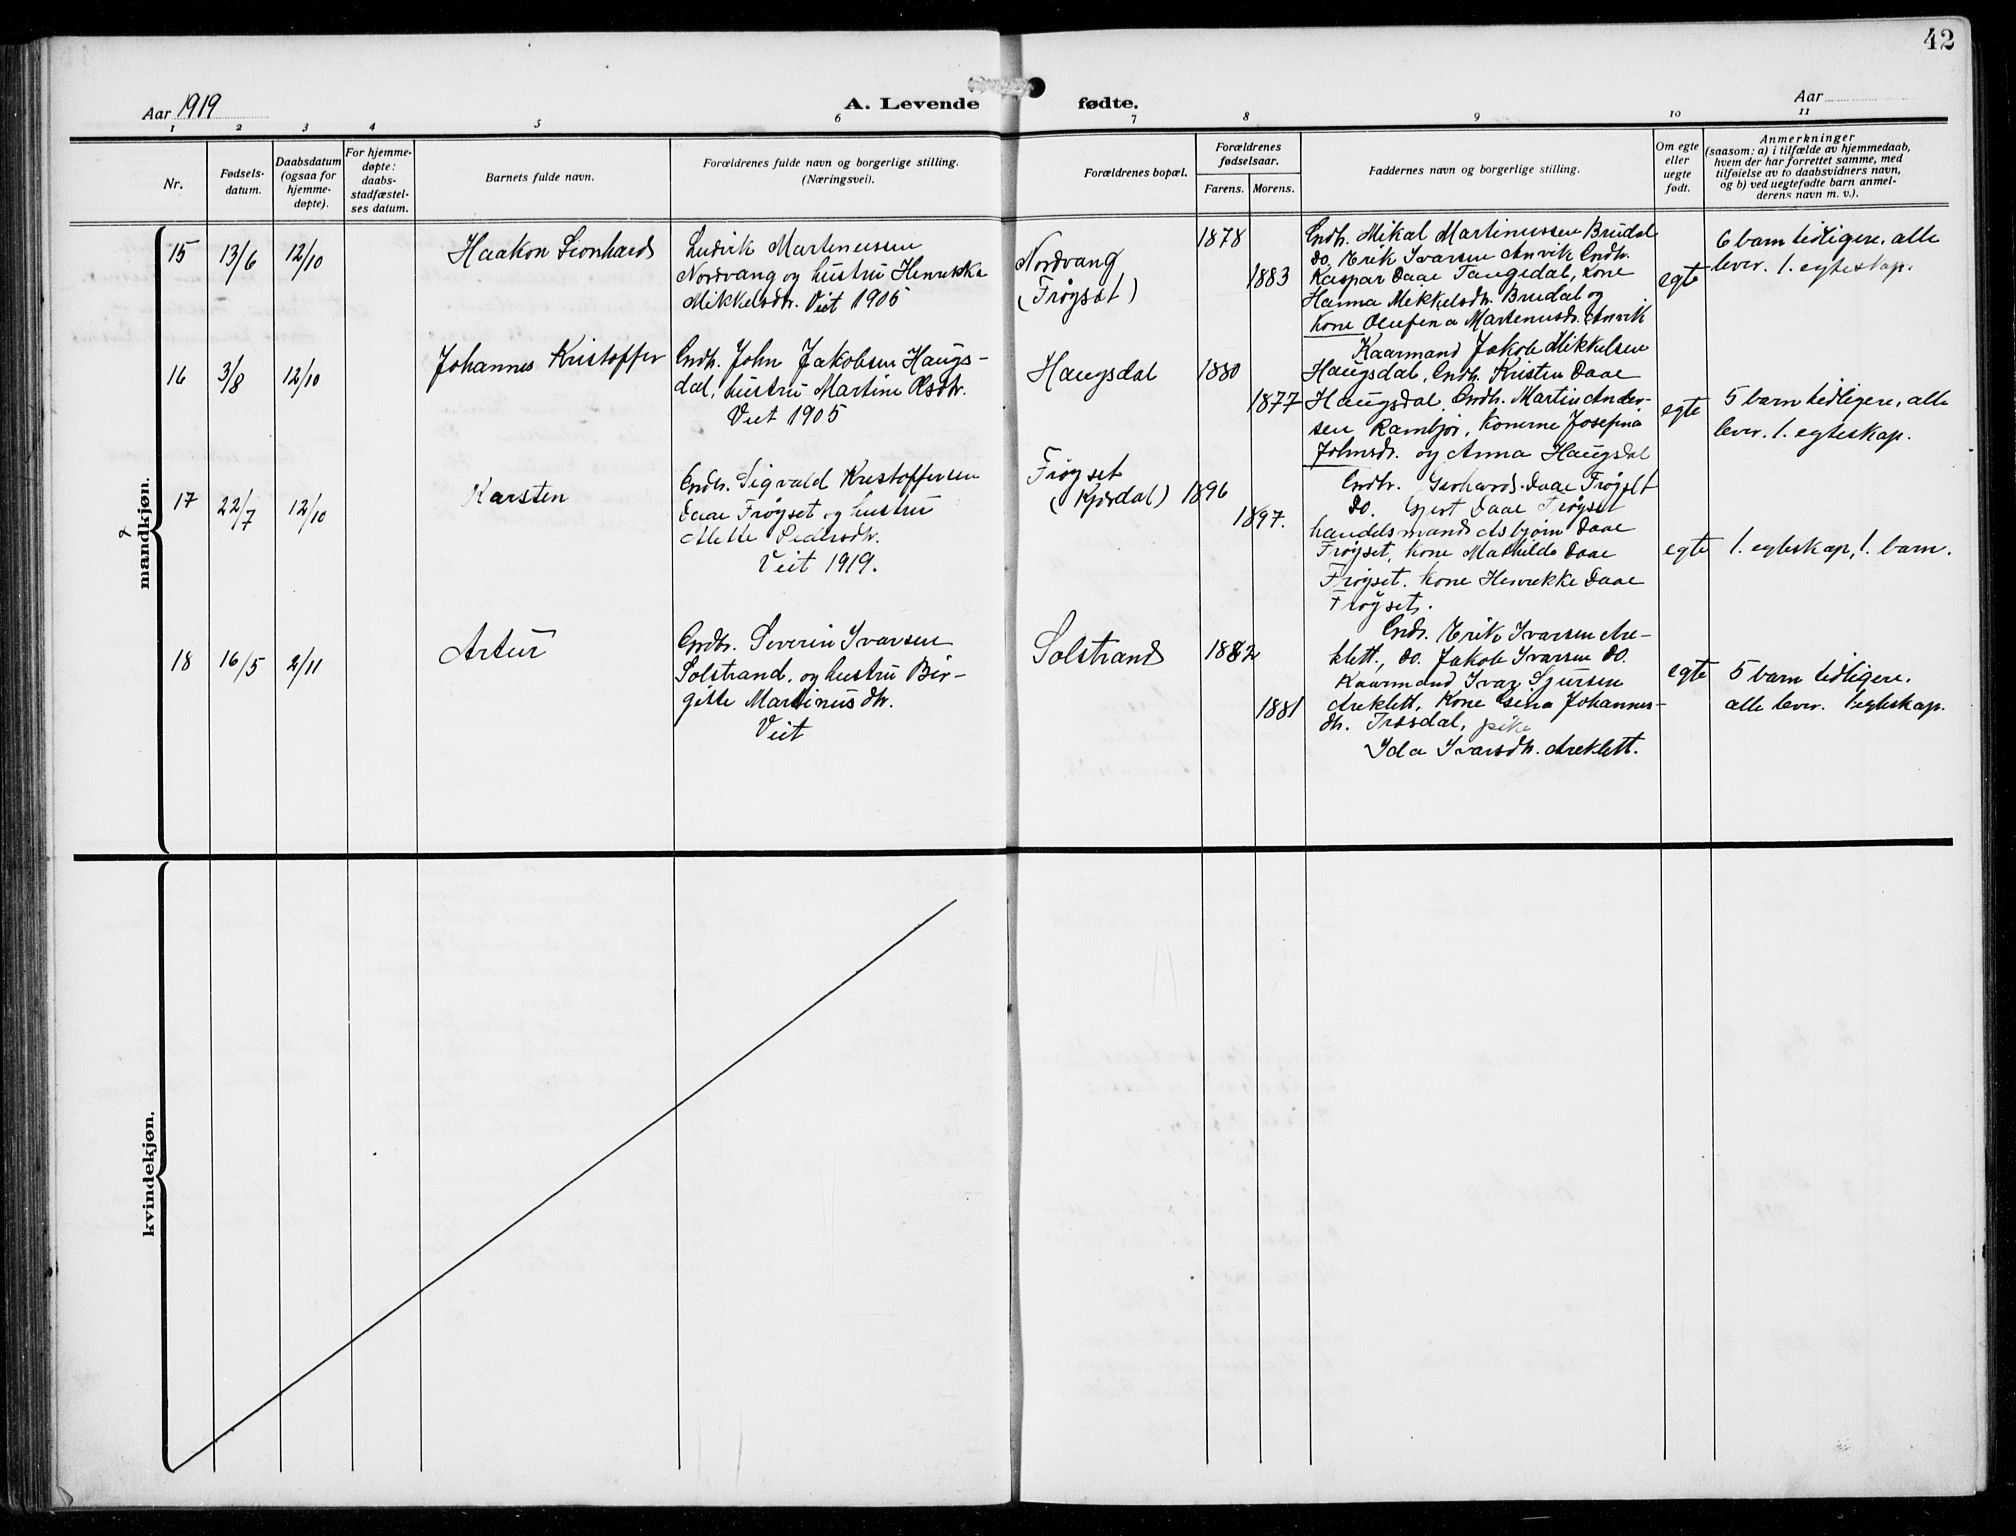 42
Aar 1919
A. Levende fødte.
Aar
1 2 3 4 5 6 7 8 9 10 11
Nr.
Fødsels-
datum.
Daabsdatum
(ogsaa for
hjemme-
døpte).
For hjemme-
døpte:
daabs-
stadfæstel-
ses datum.
Barnets fulde navn.
Forældrenes fulde navn og borgerlige stilling.
(Næringsvei).
Forældrenes bopæl.
Forældrenes
fødselsaar.
Farens. Morens.
Faddernes navn og borgerlige stilling.
Om egte
eller
uegte
født.
Anmerkninger
(saasom: a) i tilfælde av hjemmedaab,
hvem der har forrettet samme, med
tilføielse av to daabsvidners navn,
og b) ved uegtefødte barn anmel-
derens navn m. v.).
mandkjøn.
15 13/6 12/10
Haakon Leonhard
Ludvik Martinussen
Nordvang og hustru Henrikka
Mikkelsdtr. Veit 1905
Nordvang
(Frøyset)
1878
1883
Gndbr. Mikal Martinussen Brudal
do. Erik Ivarsen Anvik Gndbr.
Kaspar Daae Tangedal, Kone
Hanna Mikkelsdtr. Brudal og
Kone Olufina Martinusdtr. Anvik
egte
6 barn tidligere. alle
lever. 1. egteskap.
16 3/8 12/10
Johannes Kristoffer
Gndbr. John Jakobsen Haugs-
dal, hustru Martine Rsdtr.
Veit 1905
Haugsdal
1880
1877
Kaarmand Jakob Mikkelsen
Haugsdal, Gndbr. Kristen Daae
Haugsdal, Gndbr. Martin Ander-
sen Rambjør, Konerne Josefina
Johnsdtr. og Anna Haugsdal
egte
5 barn tidligere, alle
lever. 1. egteskap.
17 22/7 12/10
Karsten
Gndbr. Sigvald Kristoffersen
Daae Frøyset og hustru
Mette Pedersdtr.
Veit 1919.
Frøyset
(Kjørdal)
1896
1897.
Gndbr. Gerhard Daae Frøyset
do. Gjert Daae Frøyset
handelsmand Asbjørn Daae
Frøyset, Kone Mathilde Daae
Frøyset. Kone Henrikke Daae
Frøyset.
egte
1. egteskap, 1. barn.
18 16/5 2/11
Artur
Gndbr. Severin Ivarsen
Solstrand, og hustru Bir-
gitte Martinusdtr.
Veit
Solstrand
1882
1881
Gndbr. Erik Ivarsen Are-
klett., do. Jakob Ivarsen do.
Kaarmand Ivar Sjursen
Areklett, Kone Gina Johannes-
dtr. Trosdal, pike
Ida Ivarsdtr. Areklett.
egte
5 barn tidligere.
alle lever. 1 egteskap.
kvindekjøn.